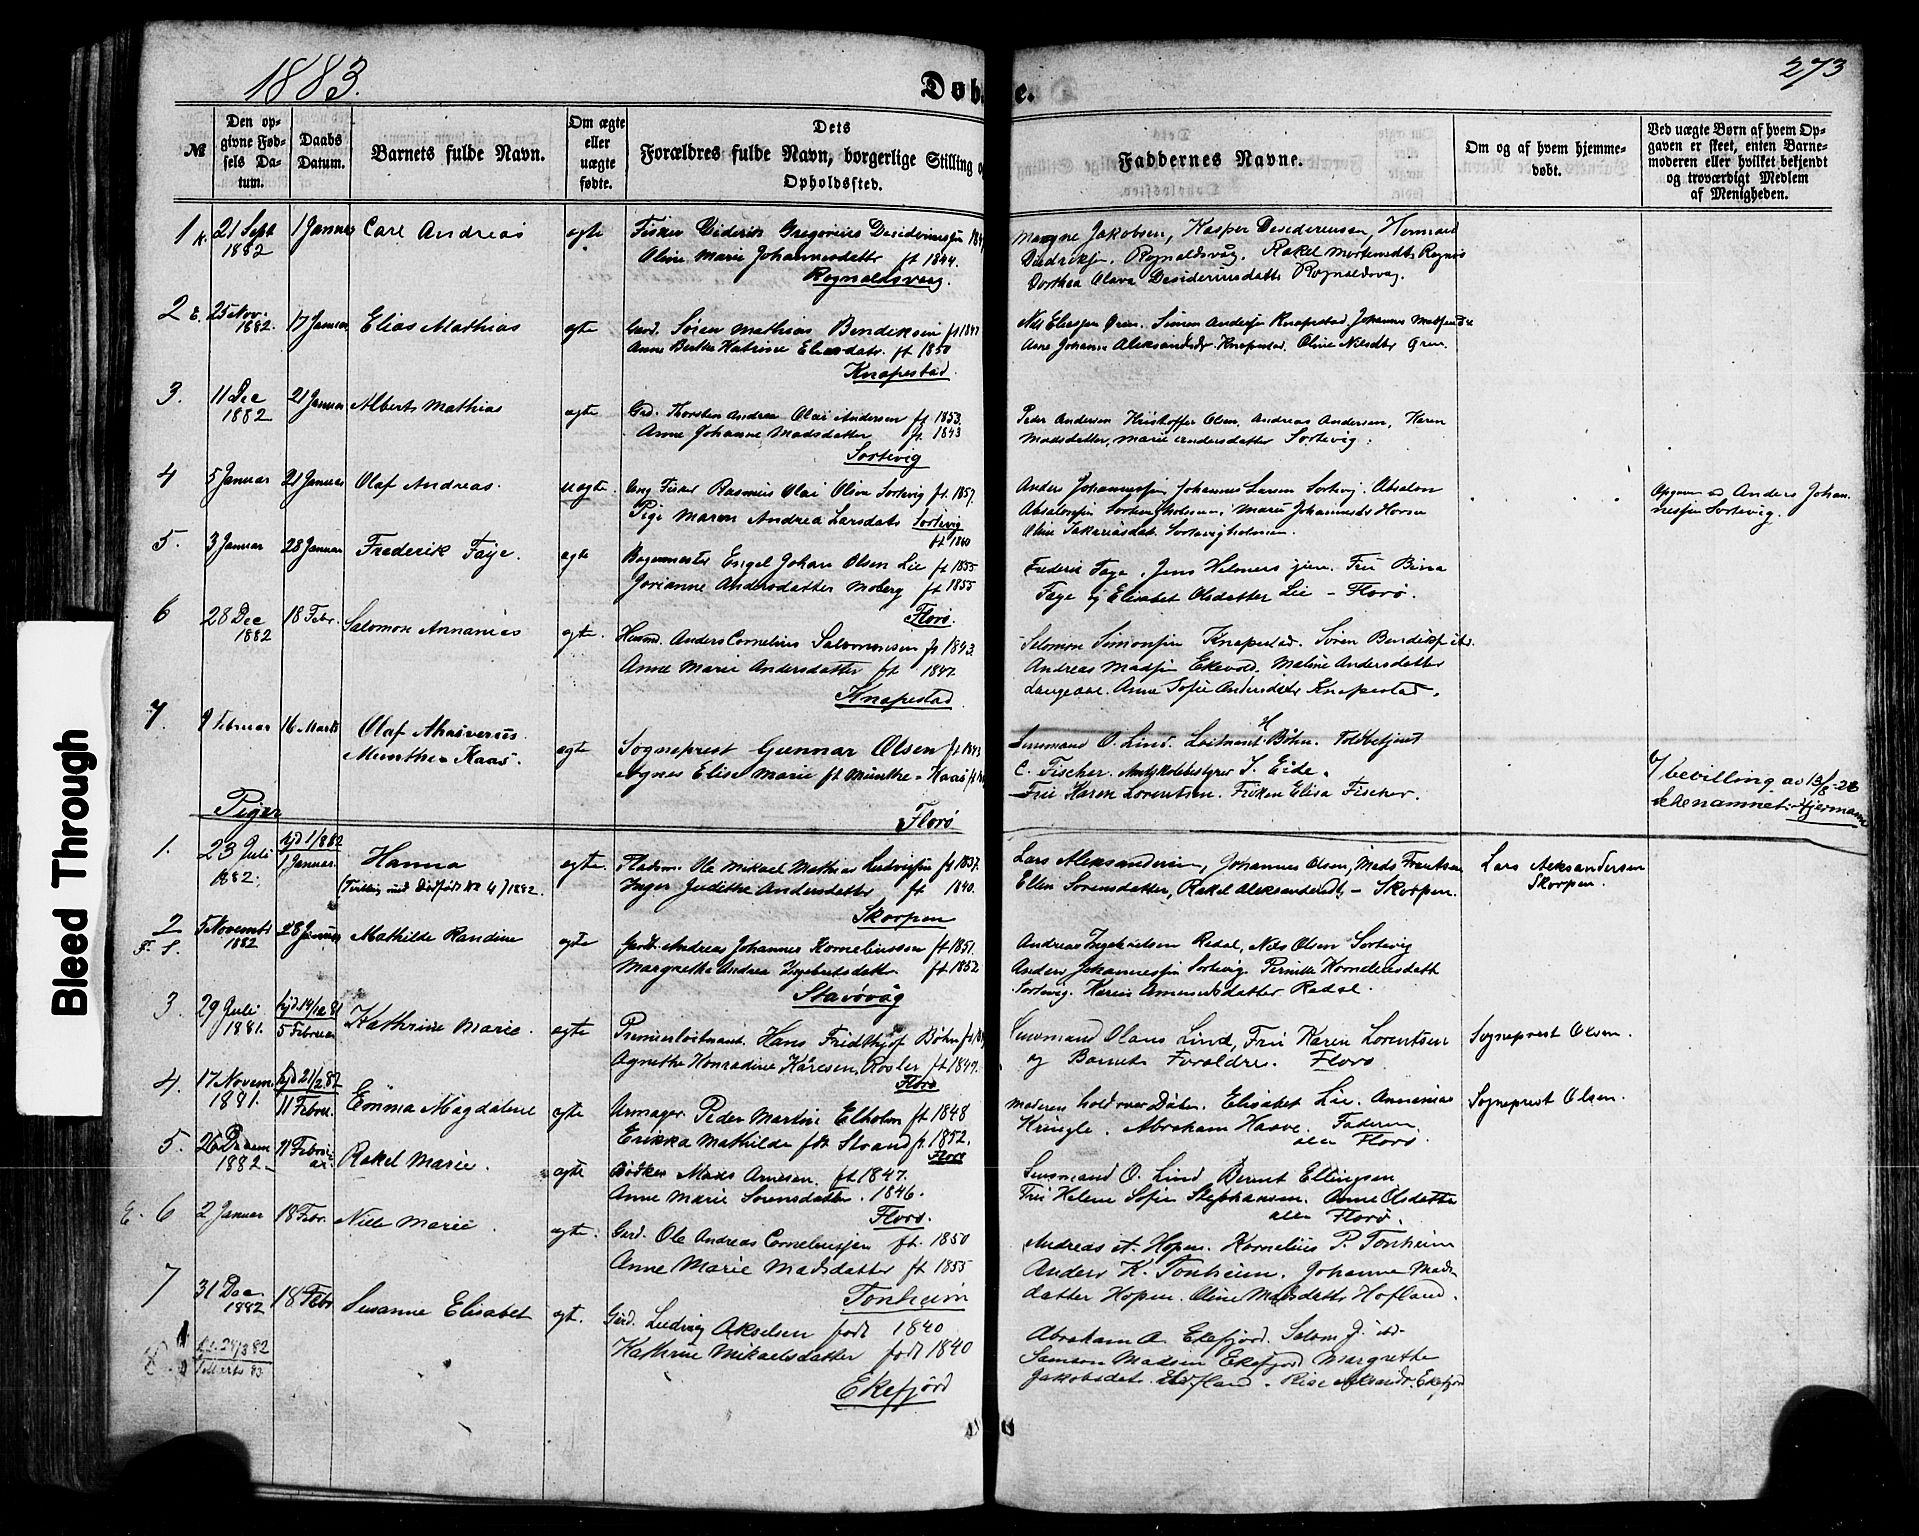 1883.
Døbte.
273
№
Den op-
givne Fød-
sels Da-
tum.
Daabs
Datum.
Barnets fulde Navn.
Om ægte
eller
uægte
fødte.
Dets
Forældres fulde Navn, borgerlige Stilling og
Opholdssted.
Faddernes Navne.
Om og af hvem hjemme-
døbt.
Ved uægte Børn af hvem Op-
gaven er skeet, enten Barne-
moderen eller hvilket bekjendt
og troværdigt Medlem
af Menigheden.
1 21 Sept 1882 1 Januar Carl Andreas ægte Fisker Diderik Gregorius Desideriussen
Oline Marie Johannesdatter ft 1844.
Rognaldsvaag.
Magne Jakobsen, Kasper Desideriussen,
Rognaldsvåg. Rakel
Dorthea Olava Desideriusdatter Rognaldsvag.
2 E. 25 Nov. 1882. 17 Januar Elias Mathias ægte Gard. Søren Mathias Bendiksen
Anne Berthe Katrine Eliasdatr. ft 1850
Knapestad.
Nils Eliassen Grøn. Simon Andersen Knapestad, Johannes
Ane Johanne Aleksandersdr. Knapestad. Oline Nilsdtr Grøn.
3. 11 Dec 1882 21 Januar Alberts Mathias ægte Grd. Thorsten Andreas Olai Andersen ft 1853.
Anne Johanne Madsdatter ft. 1843
Sortevig
Peder Andersen Kristoffer Olsen, Andreas Andersen, Karen
Madsdatter, Marie Andersdatter Sortevig.
4 5 Januar 21 Januar Olaf Andreas. uægte. Ung Fisker Rasmus Olai Olsen Sortevig ft. 1857.
Pige Maren Andrea Larsdatr Sortevig
ft 1860
Anders Johannessen, Johannes Larsen Sortevig. Absalon
Absalonsen Sortevigholmen, Marie Johannesdtr
Oline Sakariasdat. Sortevigholmen.
Opgave ved Anders Johan-
nessen Sortevig.
5. 3 Januar 28 Januar Frederik Faye. ægte Bagermester Engel Johan Olsen Lie ft 1855
Gorianne Andersdatter Moberg ft 1855
Florø.
Frederik Faye, Jens Fru Bina
Faye og Elisabet Olsdatter Lie – Florø.
6 28 Dec 1882 18 Febr. Salomon Annanias ægte. Husmd. Anders Cornelius Salomonsen ft 1843.
Anne Marie Andersdatter ft 1847
Knapestad
Salomon Simonsen Knapestad. Søren Bendiksen
Andreas Madsen Ekevold. Maline Andersdatter
Anne Sofie Andersdatr Knapestad.
7. 9 Februar 16 Marts Olaf Ahasverus
Munthe-Kaas. ægte Sogneprest Gunnar Olsen
Agnes Elise Marie ft Munthe-Kaas
Florø
Lensmand O. Lind. Løitnant H Bøhn. Toldbetjent
C. Fischer. Amtskolebestyrer J. Eide.
Fru Karen Lorentsen. Frøken Elisa Fischer.
v/ bevilling av 13/8-28
slektsnamnet: Hjermann
Piger
1. 23 Juli 1882. hjd 1/8 82 1 Januar. Hanna
(Tvilling med Dødfødt № 4) 1882. ægte. Pladsm. Ole Mikael Mathias Ludvigsen ft 1837.
Inger Judithe Andersdatter ft 1840.
Skorpen
Lars Aleksandersen, Johannes Olsen, Mads Frantsen
Ellen Sørensdatter, Rakel Aleksandersdtr – Skorpen.
Lars Aleksandersen
Skorpen.
2 F. S. 5 Novembr 1882 28 Januar Mathilde Randine ægte Gard. Andreas Johannes Korneliussen ft 1851.
Margrethe Andrea Ingebrigtsdattr ft 1852
Stavøvåg
Andreas Ingebrigtsen Redal, Nils Olsen Sortevig
Anders Johannessen Sortevig Pernille Korneliusdatt
Sortevig. Karen Redal.
3. 29 Juli 1881. hjd. 14/12 81 5 Februar Kathrine Marie. ægte Premierløitnant. Hans Fridthjof Bøhn
Agnethe Konradine Rosler ft 1847.
Florø
Lensmand Olaus Lind, Fru Karen Lorentsen
og Barnets Foreldre. Florø
Sogneprest Olsen.
4. 17 Novem. 1881. hjd 21/2 82 11 Febru. Emma Magdalene ægte Urmager. Peder Martin Elholm ft 1848
Erikka Mathilde ft Strand ft. 1852.
Florø
Moderen holdt over Daaben. Elisabet Lie.
Kringle. Abraham Faderen.
alle Florø.
Sogneprest Olsen.
5. 26 Decem 1882 11 Februar Rakel Marie. ægte Bødker Mads Arnesen. ft 1847.
Anne Marie Sørensdatter. 1846.
Florø.
Lensmand O. Lind Bernt Ellingsen
Fru Helene Sofie Stephansen. Anne Olsdatter
alle Florø.
E. 6 2 Januar 18 Febr. Nille Marie. ægte. Gard. Ole Andreas Corneliussen ft. 1850
Anne Marie Madsdatter ft 1855
Tonheim
Andreas A. Hopen. Kornelius P. Tonheim
Anders K. Tonheim. Johanne Mads-
datter Hopen. Oline Madsdattr Hofland.
7 31 Dec 1882 18 Febr Susanne Elisabet ægt. Gard. Ludvig Akselsen født 1840
Kathrine Mikaelsdatter født 1840
Ekefjord
Abraham A. Ekefjord. Salom J. ibd.
Samson Madsen Ekefjord Margrethe
Jakobsdat. Hofland. Ekefjord
Bleed Through